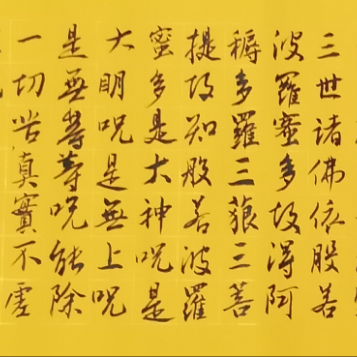 三世諸佛依般若
波羅蜜多故得阿
耨多羅三藐三菩
提故知般若波羅
蜜多是大神咒是
大明咒是無上咒
是無等等咒能除
一切苦真實不虛